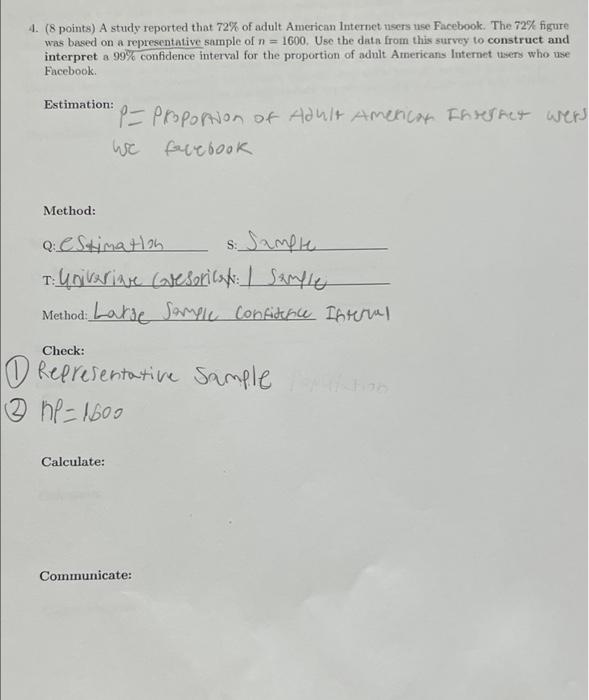 4. (8 points) A study reported that 72% of adult American Internet users use Facebook. The 72% figure
was based on a representative sample of n = 1600. Use the data from this survey to construct and
interpret a 99% confidence interval for the proportion of adult Americans Internet users who use
Facebook.
Estimation:
P= Proportion of Adult American Internet users
use facebook
Method:
Q: Estimation S: Sample
T: Univariate Categorical N: 1 Sample
Method: Large Sample Confidence Interval
Check:
① Representative Sample
② np=1600
Calculate:
Communicate: